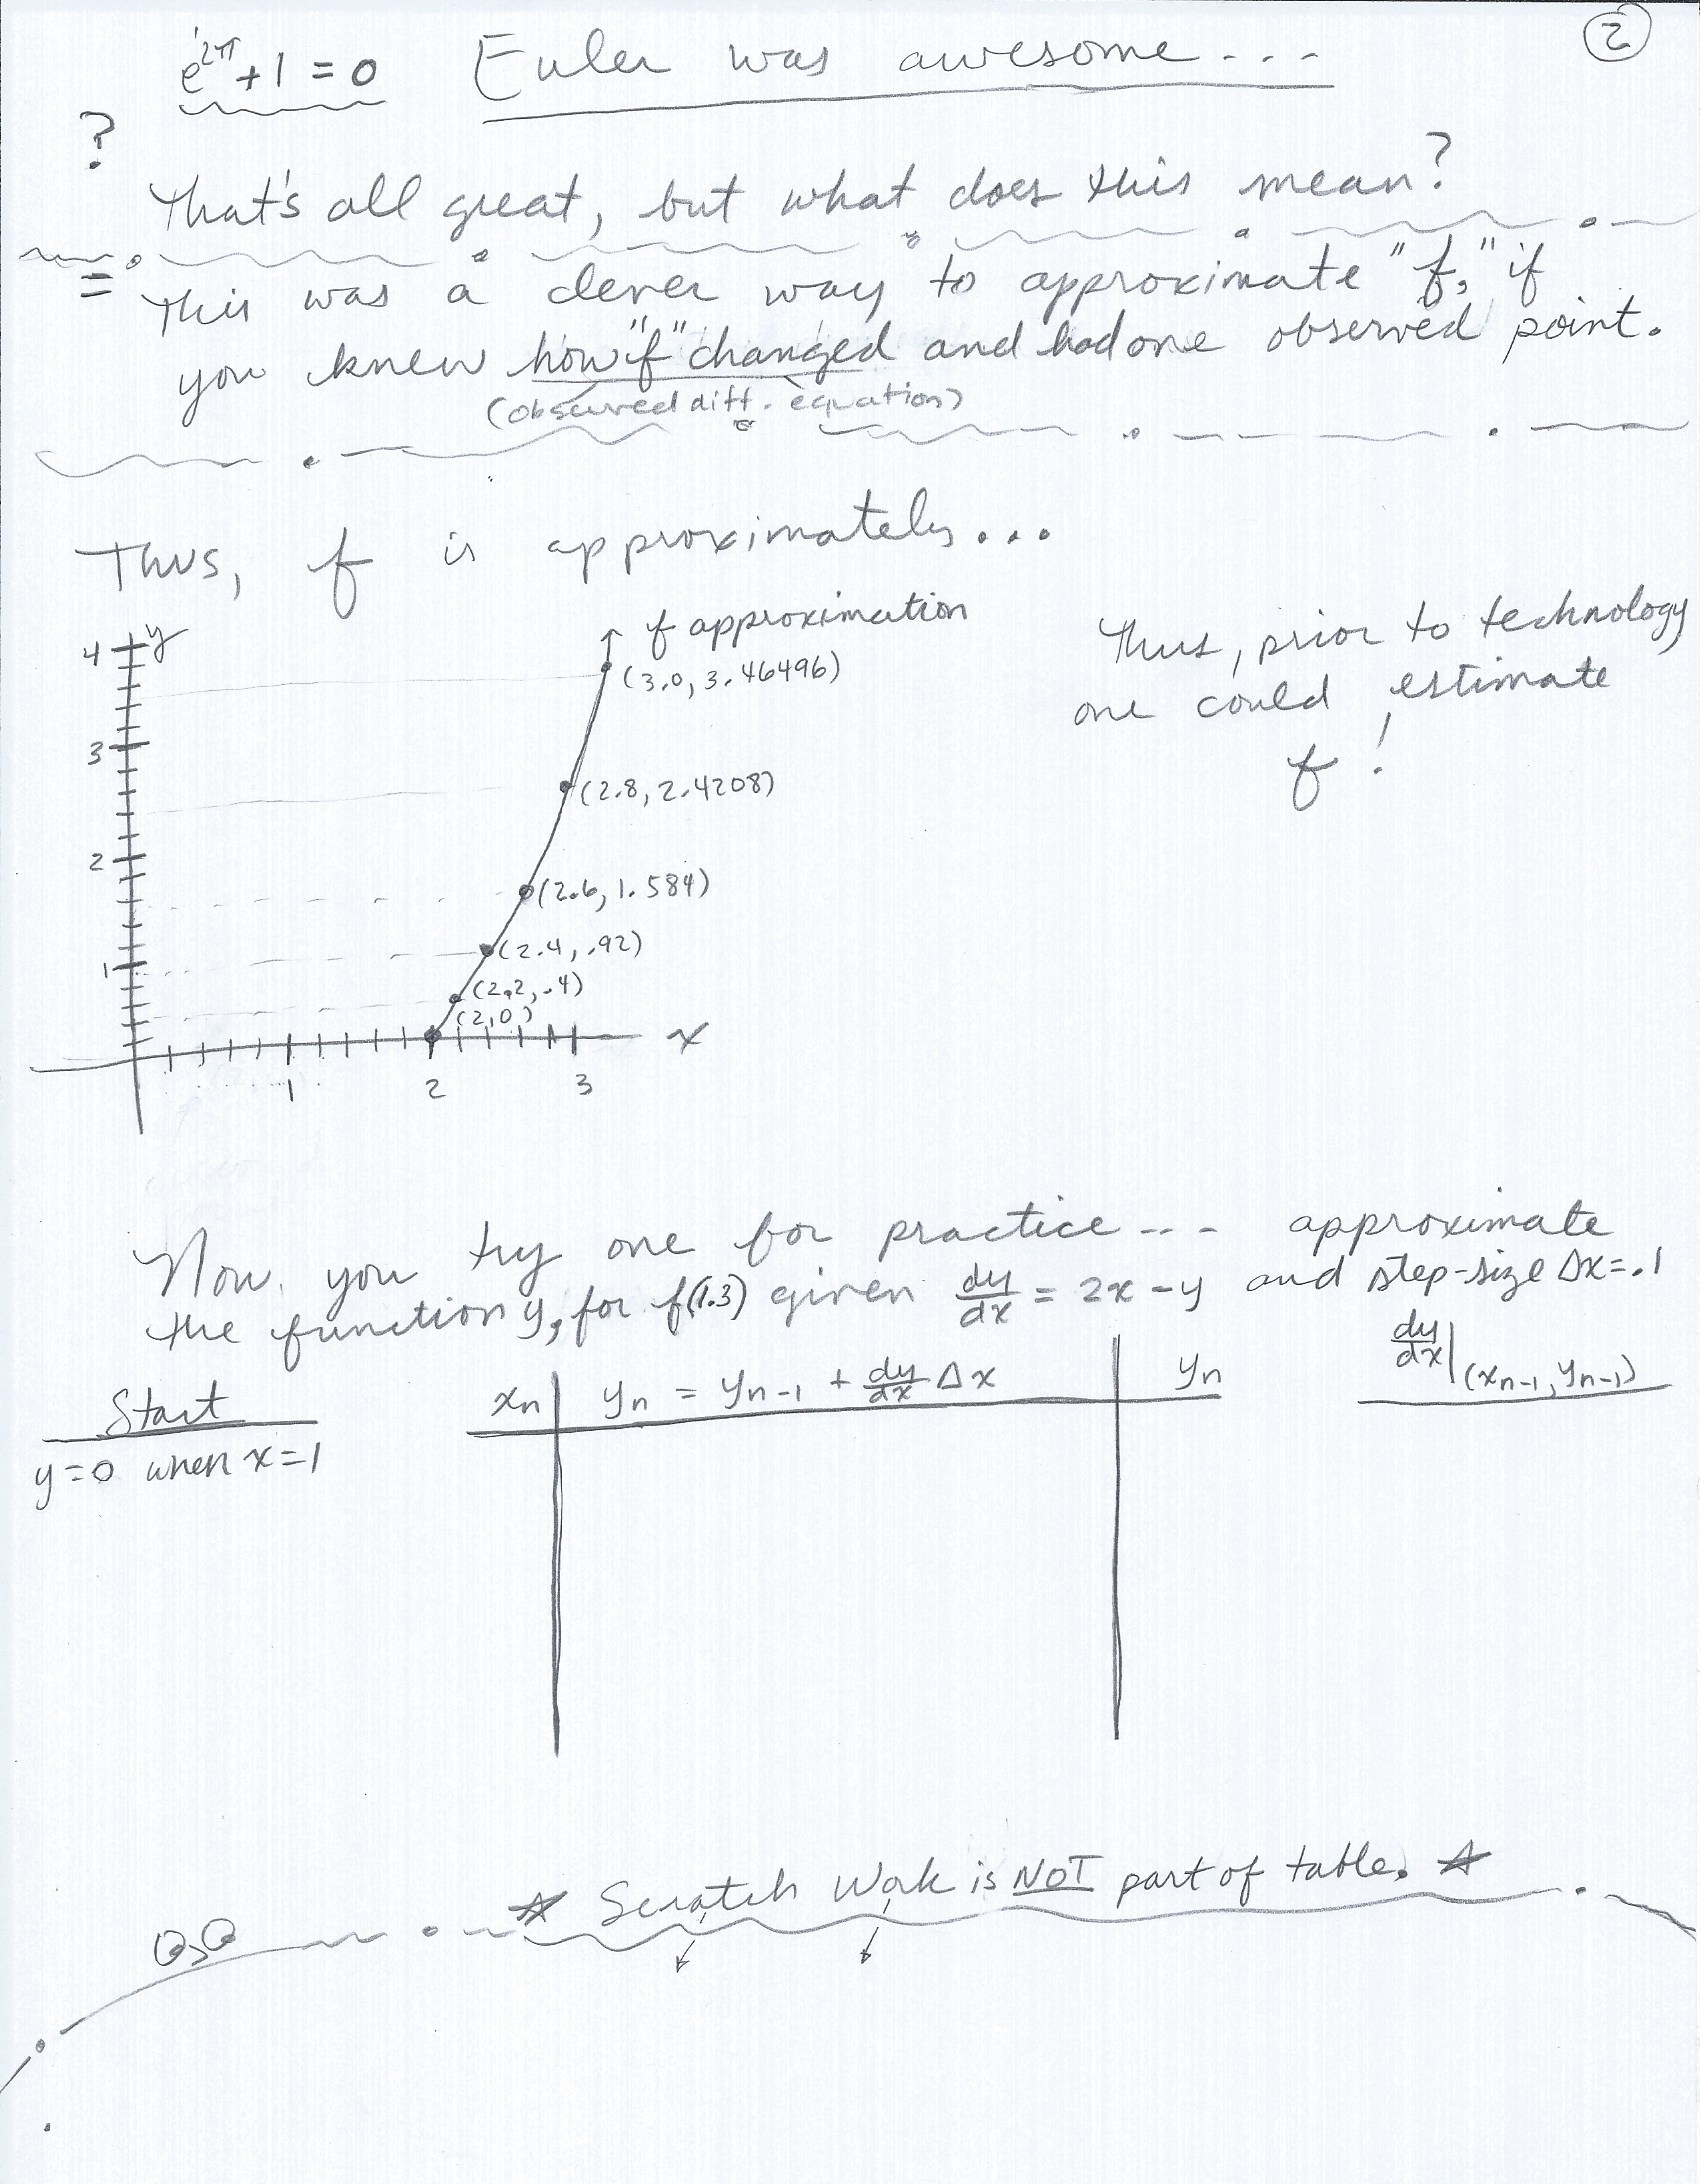 e^2π + 1 = 0 Euler was awesome... 2
?
That's all great, but what does this mean?
= This was a clever way to approximate "f," if
you knew how "f" changed and had one observed point.
(observed diff. equation)
Thus, f is approximately...
f approximation
4 y
(3.0, 3.46496)
Thus, prior to technology
one could estimate
f!
3
(2.8, 2.4208)
2
(2.6, 1.584)
(2.4, .92)
1
(2.2, .4)
(2,0)
x
1 2 3
Now, you try one for practice... approximate
the function y, for f(1.3) given dy/dx = 2x - y and step-size Δx = .1
Start
y=0 when x=1
xn yn = yn-1 + dy/dx Δx yn dy/dx|(xn-1, yn-1)
☆ Scratch Work is NOT part of table. ☆